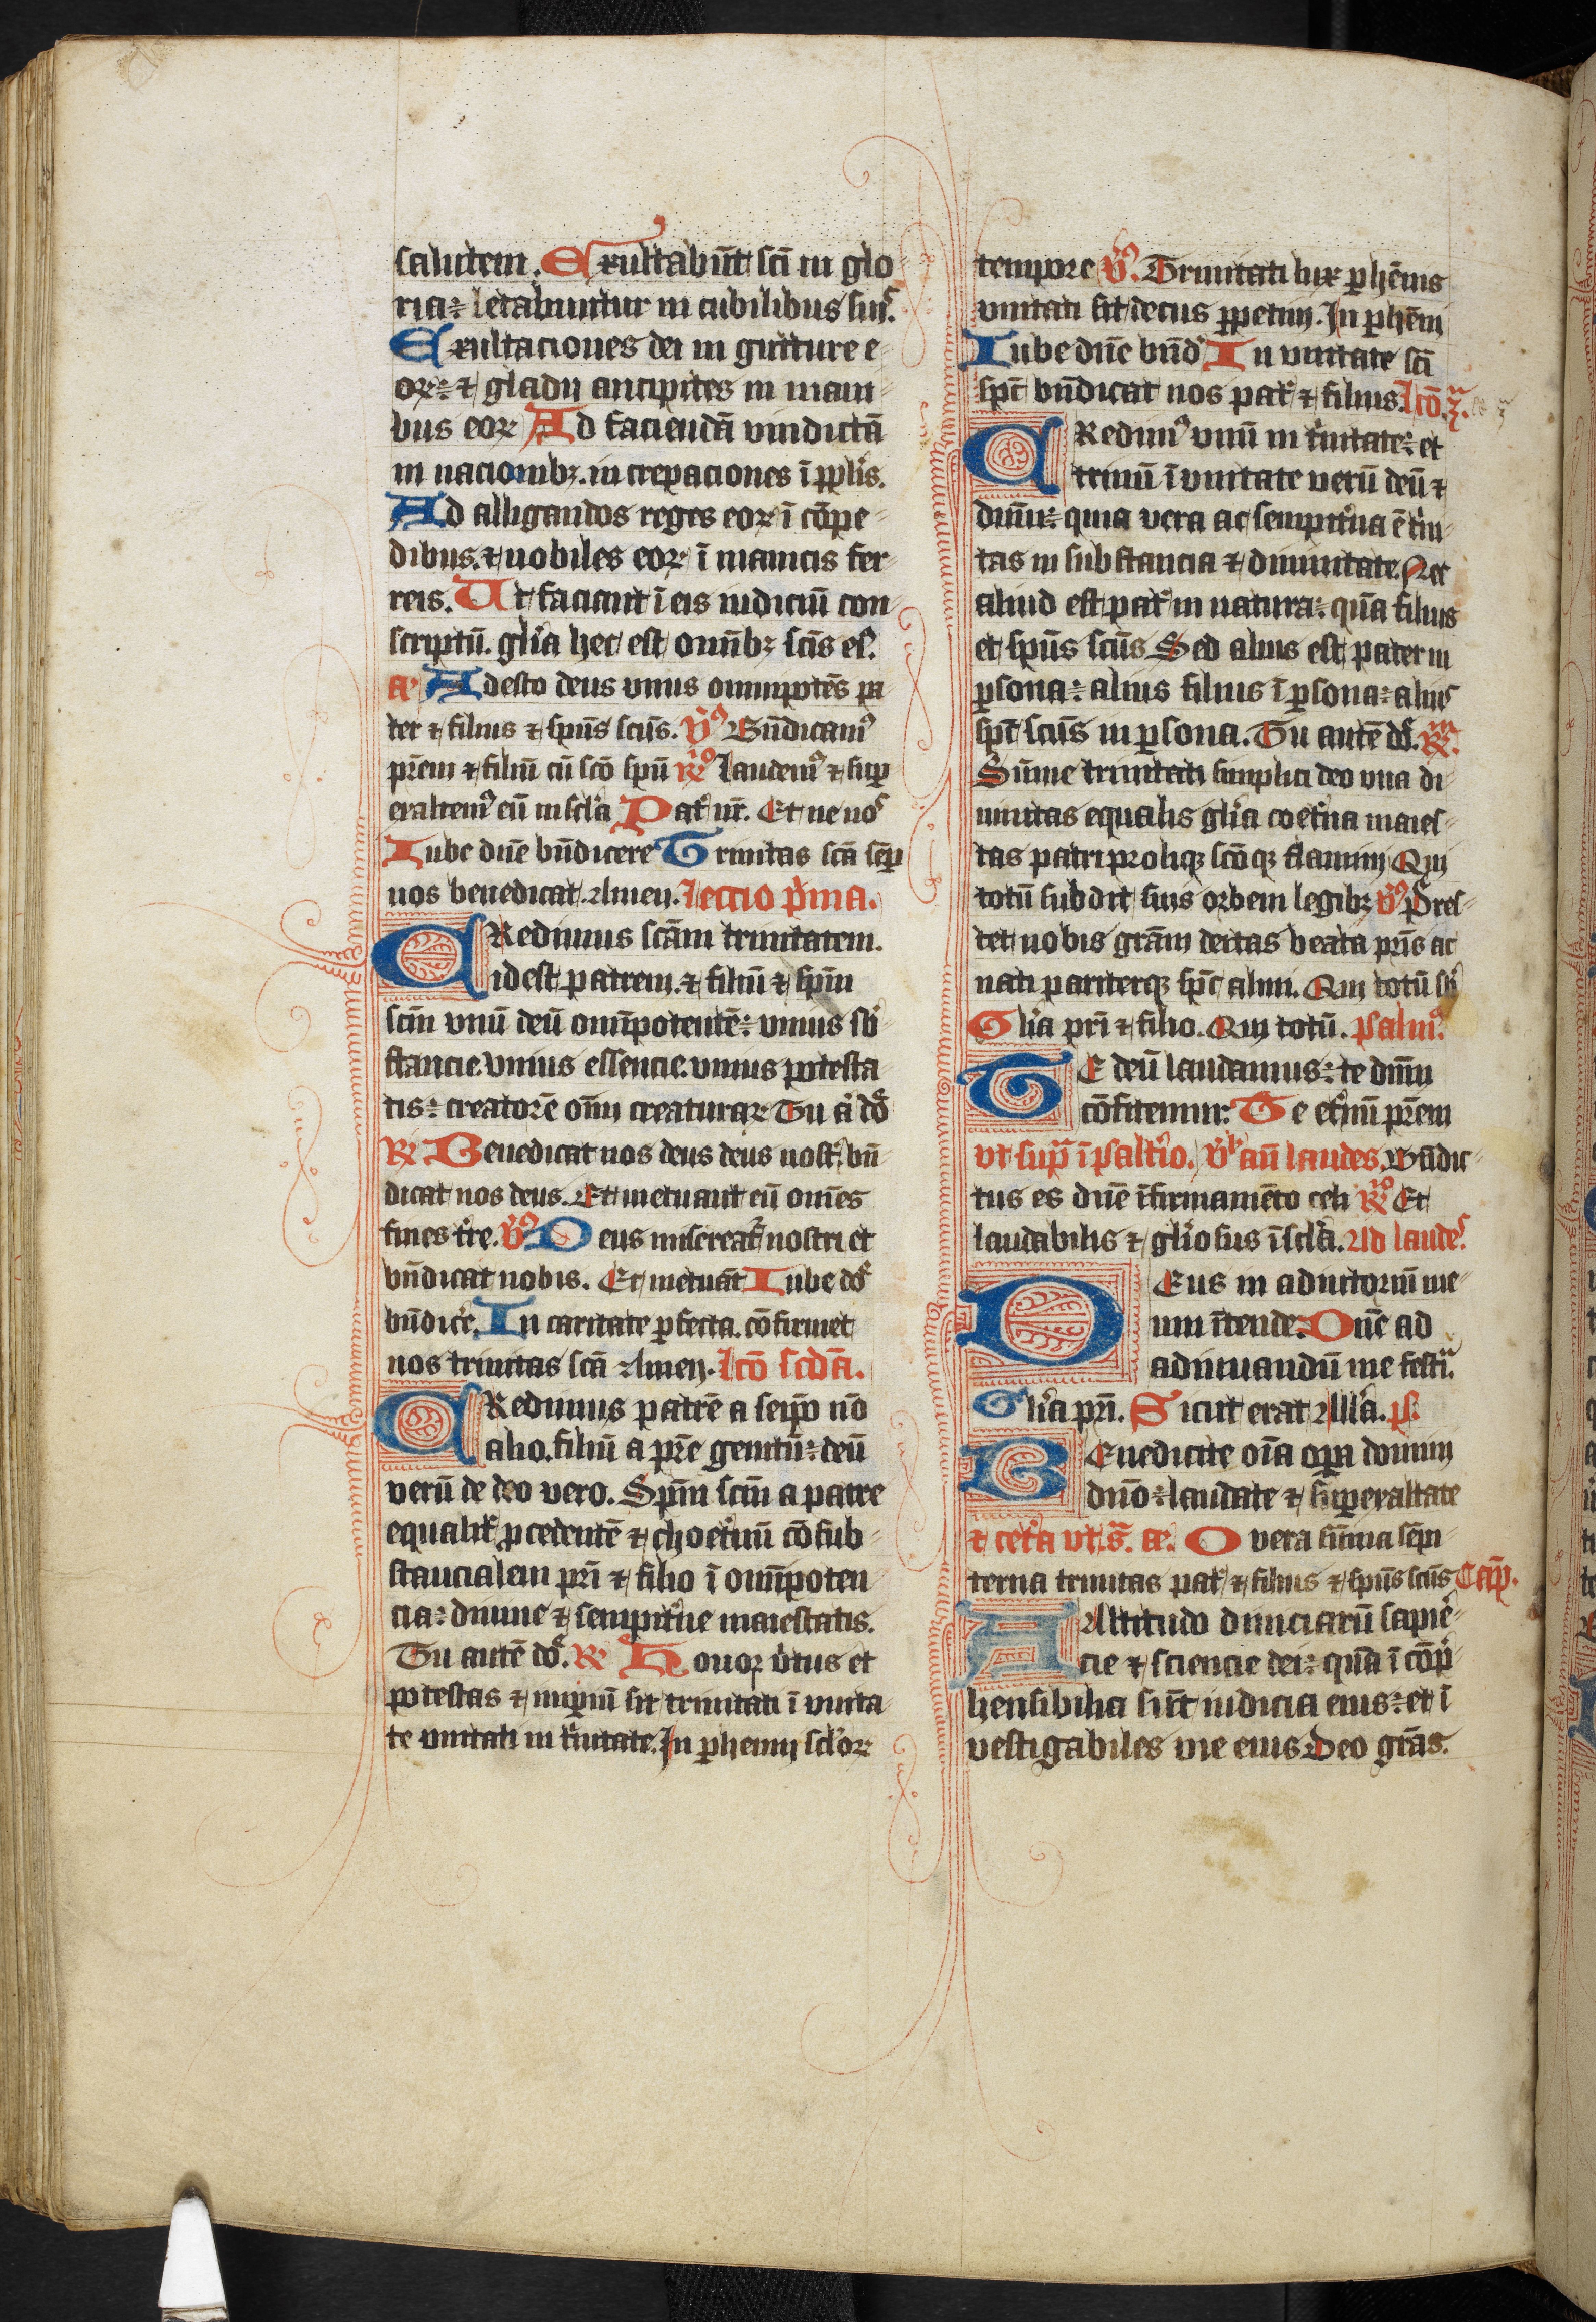 salutem. Exultabu̅t sc̅i in glo
ria: letabuntur in cubilibus suis.
Exultaciones dei in gutture e
oꝝ: ⁊ gladii ancipites in mani
bus eoꝝ Ad faciendā vindictā
in nacionibꝫ. increpaciones ī ppl̅is.
Ad alligandos reges eoꝝ ī cōpe
dibus. ⁊ nobiles eoꝝ ī manicis fer
reis. Ut faciant ī eis iudiciū con
scriptū. gl̅ia hec est omībꝫ sc̅is eꝰ.
a᷎ Adesto deus vnus omnipotēs pa
ter ⁊ filius ⁊ sp̅us sc̅us. V̾ Bn̅dicamꝰ
pr̅em ⁊ filiū cū sc̅o sp̅u R̾ Laudemꝰ ⁊ suꝑ
exaltemꝰ eū in sc̅la Pat̾ nr̅. Et ne nos
Iube dn̅e bn̅dicere Trinitas sc̅a sēꝑ
nos benedicat. Amen. Leccio pͥma.
CRedimus sc̅am trinitatem.
id est patrem. ⁊ filiū ⁊ sp̅m
sc̅m vnū deū omīpotentē: vnius sb̾
stancie. vnius essencie. vnius potesta
tis: creatorē om̅i creaturaꝝ Tu a̾ do̾
R̾ Benedicat nos deus deus nost̾. bn̅
dicat nos deus. Et metuant eū om̅es
fines tr̾e. V̾ Deus misereat̾ nostri et
bn̅dicat nobis. Et metuāt Iube do̾
bn̅dic̾e. In caritate ꝑfecta. cōfirmet
nos trinitas sc̅a Amen. Lc̅o sc̅da.
CRedimus patrē a seip̅o nō
alio. filiū a pr̅e genitū: deū
verū de deo vero. Sp̅m sc̅m a patre
equalit̾ ꝓcedentē ⁊ choet̾nū cōsub
stancialem pr̅i ⁊ filio ī omīpoten
cia: diuine ⁊ sempit̾ne maiestatis.
Tu autē do̾. R̾ Honor v̾tus et
potestas ⁊ imꝑiū sit trinitati ī vnita
te vnitati in t̾nitate. In ꝑhenni sc̅loꝝ
tempore V̾. Trinitati lux ꝑhēnis
vnitati sit decus ꝑpetuū. In ꝑhēni
Iube dn̅e bn̅d̾ In vnitate sc̅i
sp̅c bn̅dicat nos pat̾ ⁊ filius. Lc̅o. 3.
CRedimꝰ vnū in t̾nitate: et
trinū ī vnitate verū deū ⁊
dn̅m: quia vera ac sempit̾na ē t̾ni
tas in substancia ⁊ diuinitate. Nec
aliud est pat̾ in natura: quā filius
et sp̅us sc̅us Sed alius est pater in
ꝑsona: alius filius ī ꝑsona: alius
sp̅c sc̅us in ꝑsona. Tu autē do̾. R̾.
Sūme trinitati simplici deo vna di
uinitas equalis gl̅ia coet̾na maies
tas patri proliqꝫ sc̅oqꝫ flamini Qui
totū subdit suis orbem legibꝫ V̾ Pres
tet nobis gr̅am deitas beata pr̅is ac
nati pariterqꝫ sp̅c almi. Qui totū sb̾
Gl̅ia pr̅i ⁊ filio. Qui totū. Psalmꝰ.
TE deū laudamus: te dn̅m
cōfitemur: Te et̾nū pr̅em
vt supͣ ī psalt̾io. V̾ an̅ laudes. Bn̅dic
tus es dn̅e ī firmamēto celi R̾ Et
laudabilis ⁊ gl̅iosus ī sc̅la. Ad laudes.
DEus in adiutoriū me
um ītende: Dn̅e ad
adiuuandū me festī.
Gl̅ia pr̅i. Sicut erat All̅a. ps.
BEnedicite oi̅a oꝑa domini
dn̅o: laudate ⁊ suꝑexaltate
⁊ cet̾a vt. sͣ. ae. O vera sūma sēpi
terna trinitas pat̾ ⁊ filius ⁊ sp̅us sc̅us Cap̅.
AAltitudo diuiciarū sapiē
cie ⁊ sciencie dei: quā ī cōp̾
hensibilia sūt iudicia eius: et ī
vestigabiles vie eius Deo gr̅as.